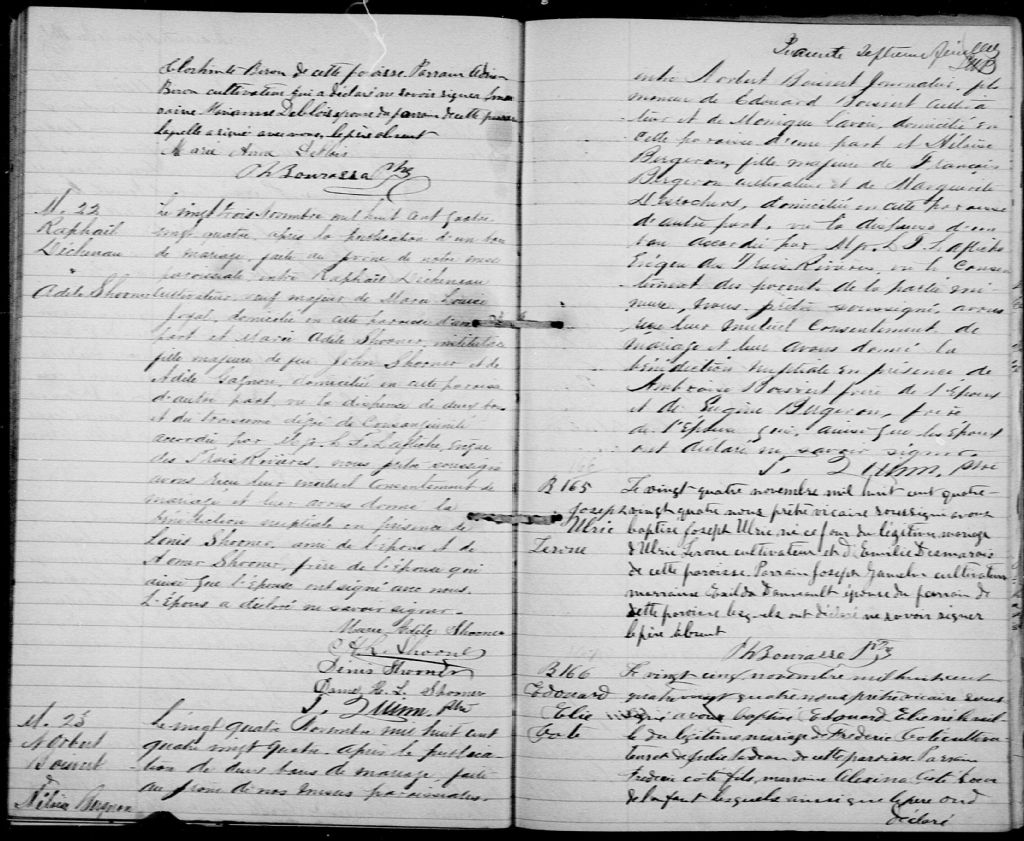 Clorhinte Biron de cette paroisse. Parrain Adrien
Biron cultivateur qui a déclaré ne savoir signer, mar
raine Marianne Leblois épouse du parrain de cette paroisse
laquelle a signé avec nous, le père absent
Marie Anna Leblois
Ph Bourassa Ptre
M. 22
Raphaël
Déchenau
Adèle Shooner
Le vingt trois Novembre mil huit cent quatre
vingt quatre, après la publication d'un ban
de mariage, faite au prône de notre messe
paroissiale, entre Raphaël Déchenau
cultivateur, veuf majeur de Marie Louise
Joyal, domicilié en cette paroisse d'une
part et Marie Adèle Shooner, institutrice
fille majeure de feu John Shooner et de
Adèle Gagnon, domiciliée en cette paroisse
d'autre part, vu la dispense de deux bans
et du troisième dégré de Consanguinité
accordée par Mgr. L. F. Laflèche, Evêque
des Trois Rivières, nous prêtre soussigné
avons reçu leur mutuel Consentement de
mariage et leur avons donné la
bénédiction nuptiale en présence de
Denis Shooner, ami de l'époux et de
Homer Shooner, frère de l'épouse qui
ainsi que l'épouse ont signé avec nous.
L'Époux a déclaré ne savoir signer.
Marie Adèle Shooner
Shooner
Denis Shooner
H. L. Shooner
J. Quinn, ptre
M. 23
Norbert
Boisvert
&
Bergeron
Le vingt quatre Novembre mil huit cent
quatre vingt quatre, après la publica-
tion de deux bans de mariage, faite
au prône de nos messes paroissiales,
Quarante Septième feuillet
entre Norbert Boisvert Journalier, fils
mineur de Edouard Boisvert Culti-
teur et de Monique domicilié en
cette paroisse d'une part et
Bergeron, fille majeure de François
Bergeron cultivateur et de Marguerite
Desrochers, domiciliée en cette paroisse
d'autre part, vu la dispense d'un
ban accordée par Mgr. L. F. Laflèche
Evêque des Trois-Rivières, vu le Consen-
tement des parents de la partie mi-
neure, nous, prêtre soussigné, avons
reçu leur mutuel Consentement de
mariage et leur avons donné la
bénédiction nuptiale en présence de
Ambroise Boisvert frère de l'Époux
et de Eugène Bergeron, frère
de l'Épouse qui, ainsi que les époux
ont déclaré ne savoir signer.
J. Quinn, ptre
B 165
Joseph
Ulric
Le vingt-quatre novembre mil huit cent quatre-
vingt quatre nous prêtre vicaire soussigné avons
baptisé Joseph Ulric, né ce jour du légitime mariage
d'Ulric cultivateur et d'Emélie Desmarais
de cette paroisse. Parrain Joseph cultivateur
marraine Exilda Danneault épouse du parrain de
cette paroisse lesquels ont déclaré ne savoir signer
le père absent
Ph Bourassa Ptre
B 166
Edouard
Elie
Coté
Le vingt cinq novembre mil huit cent
quatre vingt quatre nous prêtre vicaire sous
signé avons baptisé Edouard Elie né le veil-
le du légitime mariage de Frédéric Coté cultiva-
teur et de de cette paroisse. Parrain
Frédéric Coté fils, marraine Alexina Coté soeur
de l'enfant lesquels ainsi que le père ont
déclaré